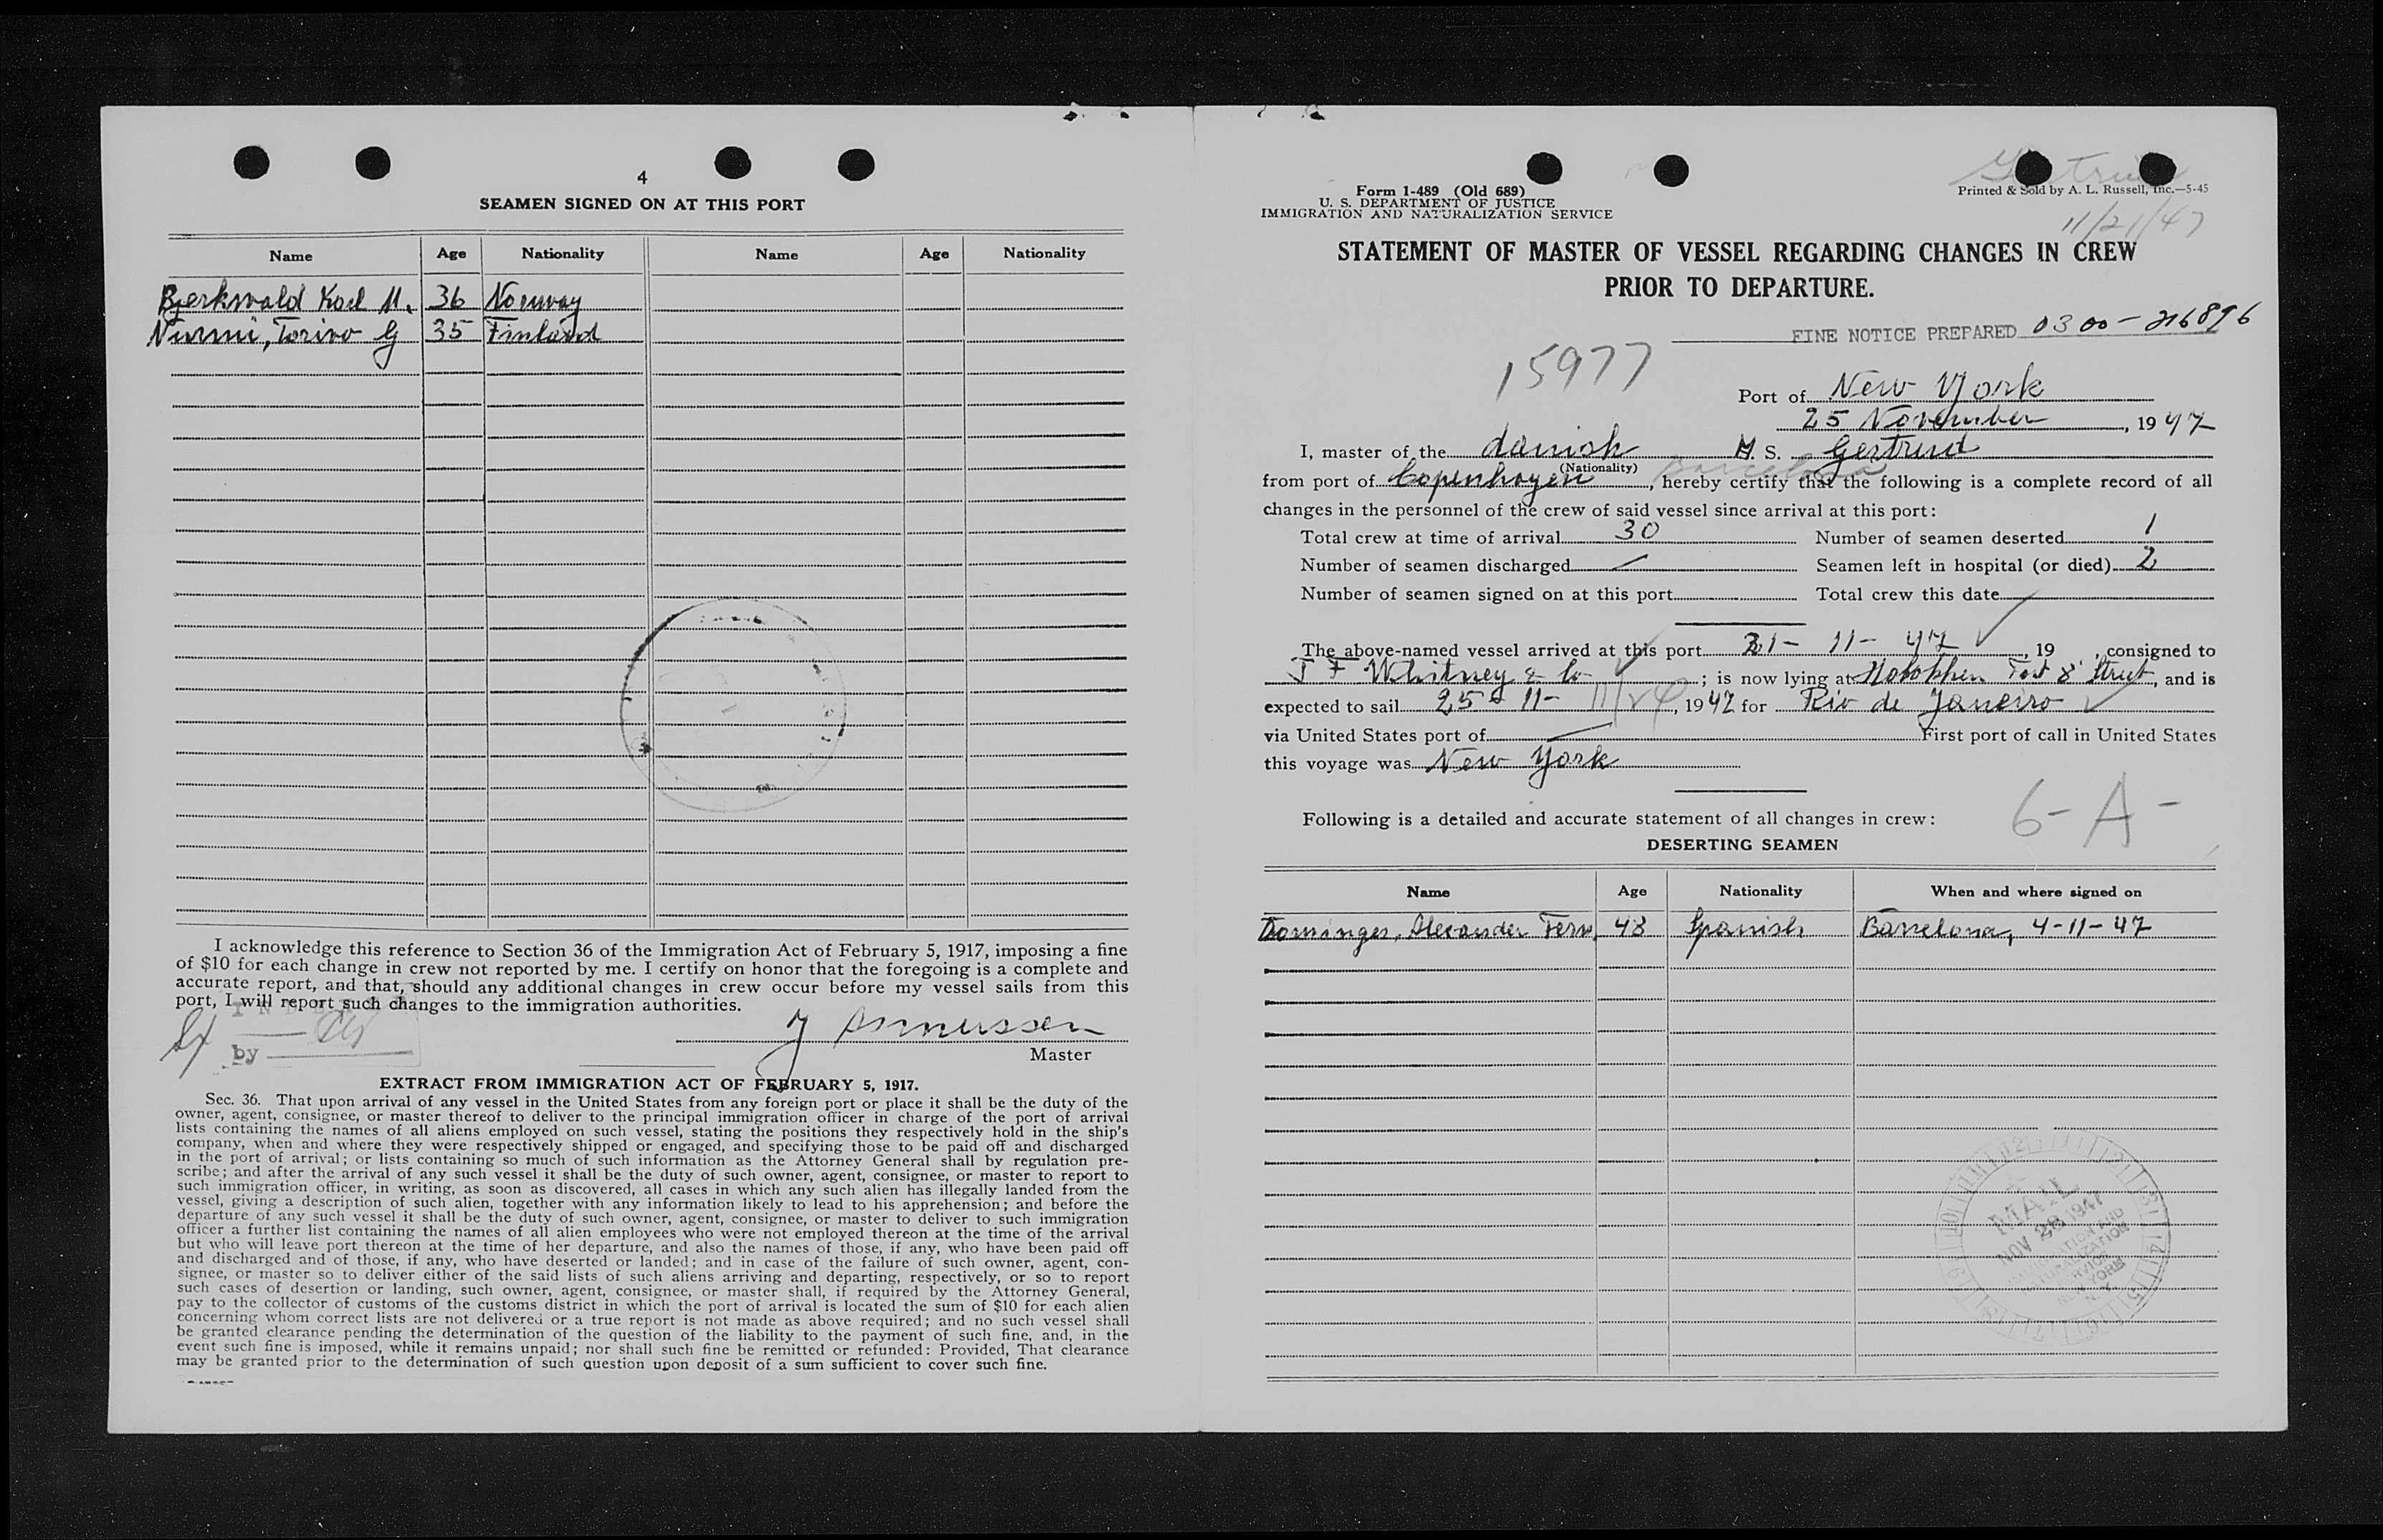 4
SEAMEN SIGNED ON AT THIS PORT
Name Age Nationality Name Age Nationality
Bjerkwald Karl M. 36 Norway
Nurmi, Toivo G 35 Finland
I acknowledge this reference to Section 36 of the Immigration Act of February 5, 1917, imposing a fine
of $10 for each change in crew not reported by me. I certify on honor that the foregoing is a complete and
accurate report, and that, should any additional changes in crew occur before my vessel sails from this
port, I will report such changes to the immigration authorities.
by
J Asmussen
Master
EXTRACT FROM IMMIGRATION ACT OF FEBRUARY 5, 1917.
Sec. 36. That upon arrival of any vessel in the United States from any foreign port or place it shall be the duty of the
owner, agent, consignee, or master thereof to deliver to the principal immigration officer in charge of the port of arrival
lists containing the names of all aliens employed on such vessel, stating the positions they respectively hold in the ship's
company, when and where they were respectively shipped or engaged, and specifying those to be paid off and discharged
in the port of arrival; or lists containing so much of such information as the Attorney General shall by regulation pre-
scribe; and after the arrival of any such vessel it shall be the duty of such owner, agent, consignee, or master to report to
such immigration officer, in writing, as soon as discovered, all cases in which any such alien has illegally landed from the
vessel, giving a description of such alien, together with any information likely to lead to his apprehension; and before the
departure of any such vessel it shall be the duty of such owner, agent, consignee, or master to deliver to such immigration
officer a further list containing the names of all alien employees who were not employed thereon at the time of the arrival
but who will leave port thereon at the time of her departure, and also the names of those, if any, who have been paid off
and discharged and of those, if any, who have deserted or landed; and in case of the failure of such owner, agent, con-
signee, or master so to deliver either of the said lists of such aliens arriving and departing, respectively, or so to report
such cases of desertion or landing, such owner, agent, consignee, or master shall, if required by the Attorney General,
pay to the collector of customs of the customs district in which the port of arrival is located the sum of $10 for each alien
concerning whom correct lists are not delivered or a true report is not made as above required; and no such vessel shall
be granted clearance pending the determination of the question of the liability to the payment of such fine, and, in the
event such fine is imposed, while it remains unpaid; nor shall such fine be remitted or refunded: Provided, That clearance
may be granted prior to the determination of such question upon deposit of a sum sufficient to cover such fine.
Gertrud
Form 1-489 (Old 689)
U. S. DEPARTMENT OF JUSTICE
IMMIGRATION AND NATURALIZATION SERVICE
Printed & Sold by A. L. Russell, Inc.—5-45
11/21/47
STATEMENT OF MASTER OF VESSEL REGARDING CHANGES IN CREW
PRIOR TO DEPARTURE.
FINE NOTICE PREPARED 0300-216896
15977
Port of New York
25 November, 1947
I, master of the danish M. S. Gertrud
(Nationality) Barcelona
from port of Copenhagen, hereby certify that the following is a complete record of all
changes in the personnel of the crew of said vessel since arrival at this port:
Total crew at time of arrival 30 Number of seamen deserted 1
Number of seamen discharged — Seamen left in hospital (or died) 2
Number of seamen signed on at this port Total crew this date
The above-named vessel arrived at this port 21- 11- 47, 19 , consigned to
J F Whitney & Co ; is now lying at Hoboken Foot 8' Street, and is
expected to sail 25- 11- 11/24, 1947 for Rio de Janeiro
via United States port of — First port of call in United States
this voyage was New York
6-A-
Following is a detailed and accurate statement of all changes in crew:
DESERTING SEAMEN
Name Age Nationality When and where signed on
Dominges, Alexander Fern. 48 Spanish Barcelona, 4-11-47
MAIL
NOV 28 1947
IMMIGRATION AND
NATURALIZATION
SERVICE
NEW YORK
N.Y.